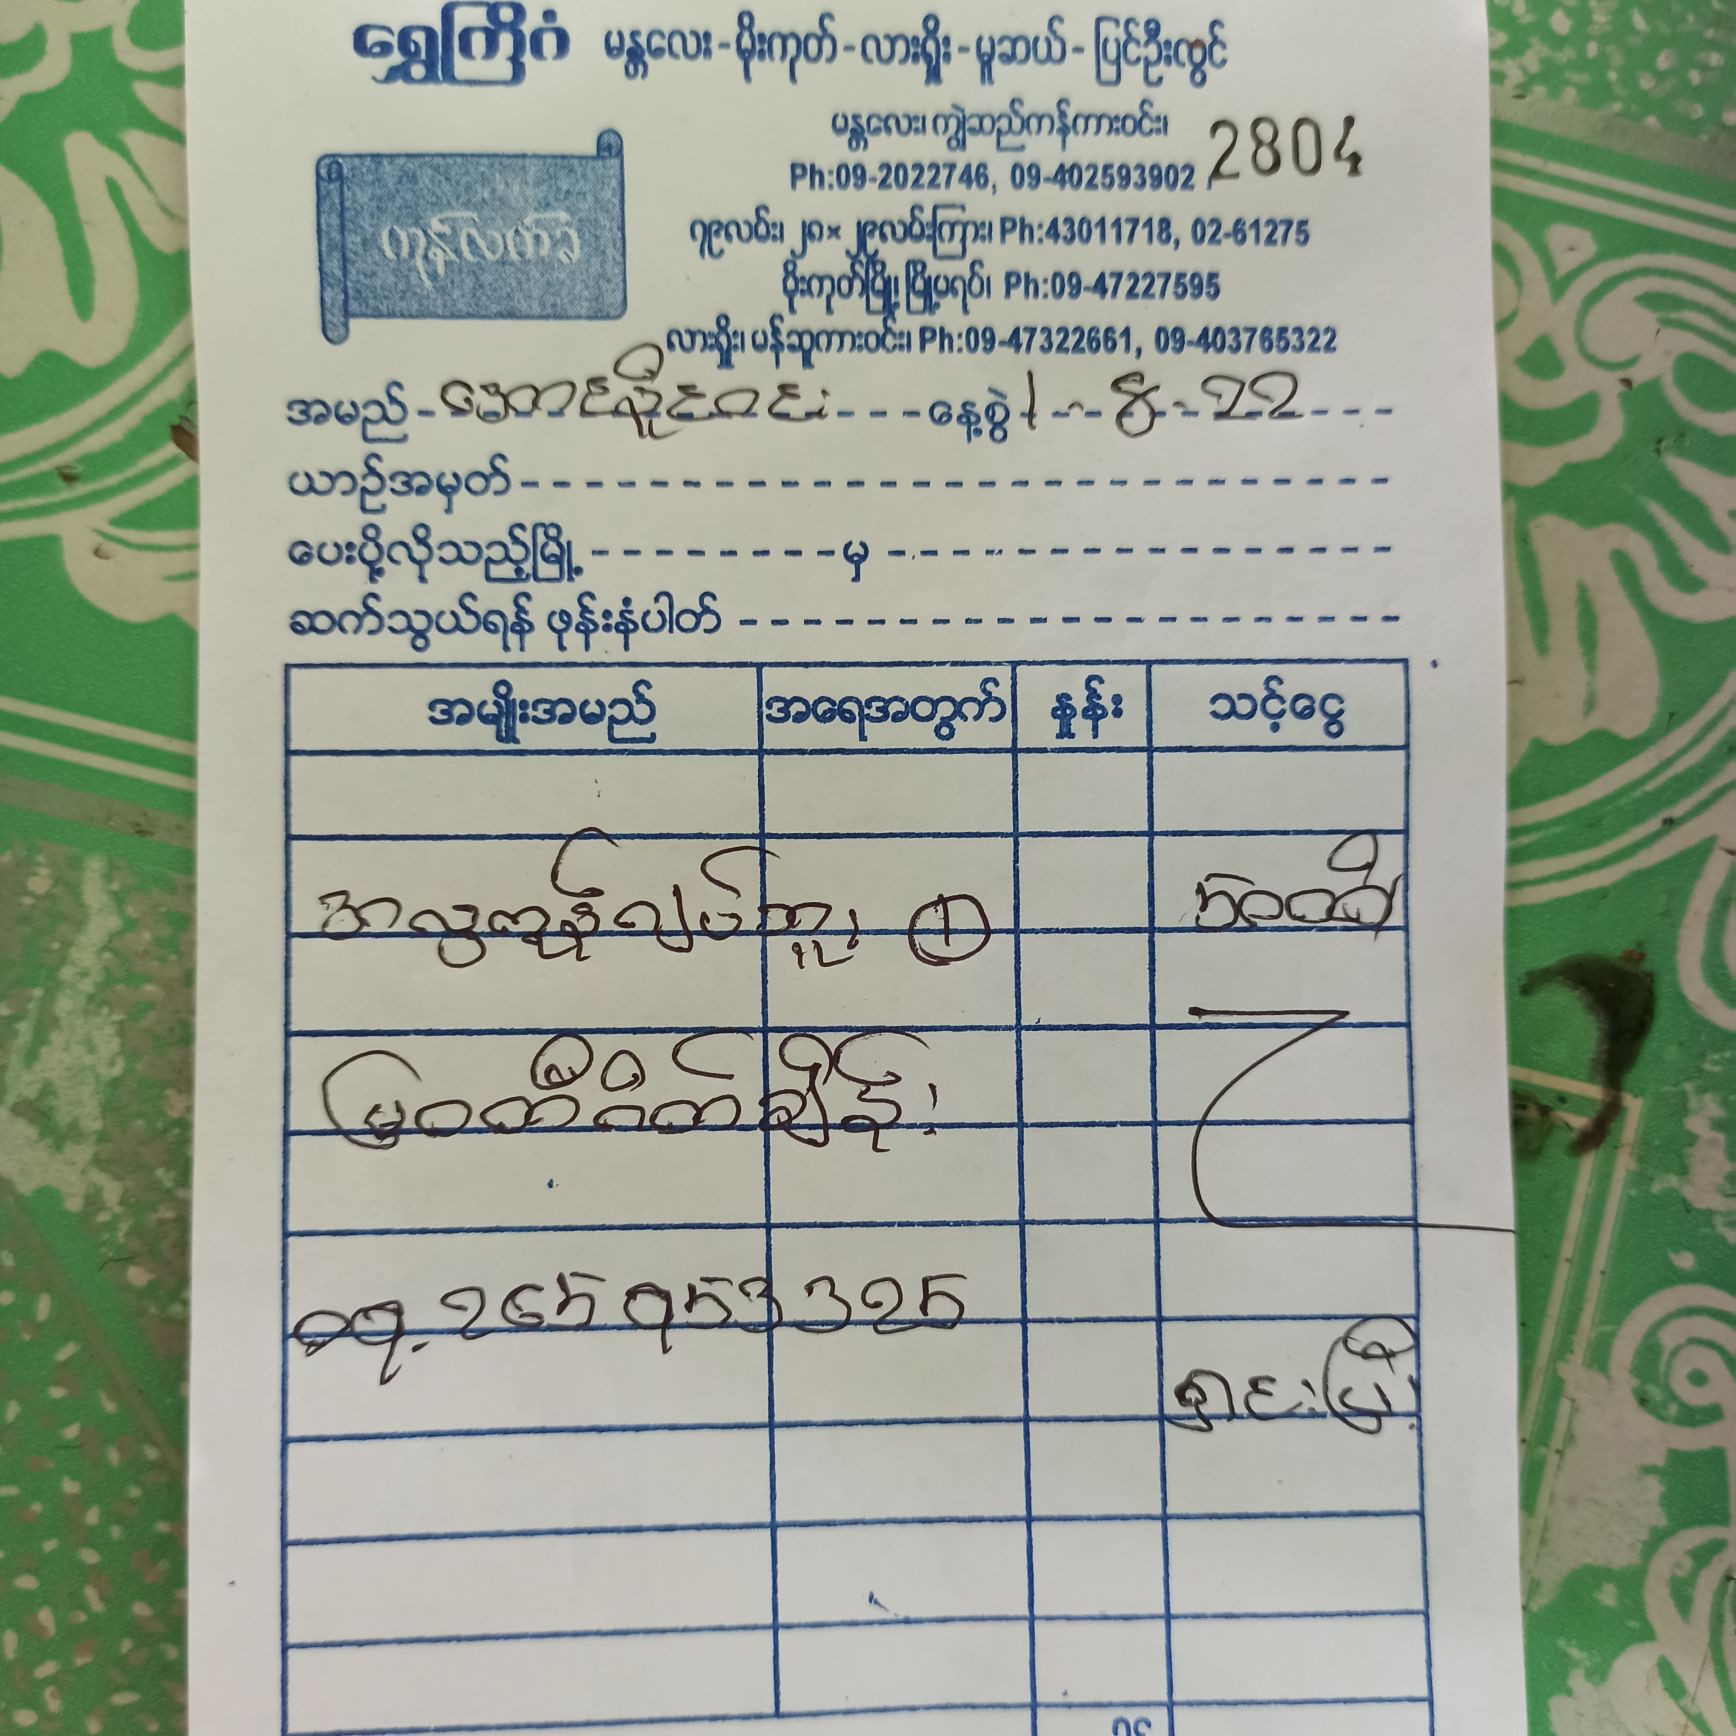 ရွှေကြိုဂံ မန္တလေး-မိုးကုတ်-လားရှိုး-မူဆယ်-ပြင်ဦးလွင်
မန္တလေး၊ ကျွဲဆည်ကန်ကားဝင်း၊
2804
Ph:09-2022746, 09-402593902
ကုန်လက်ခံ
၇၉လမ်း၊ ၂၈×၂၉လမ်းကြား၊ Ph:43011718, 02-61275
မိုးကုတ်မြို့၊ မြို့မရပ်၊ Ph:09-47227595
လားရှိုး၊ မန်ဆူကားဝင်း၊ Ph:09-47322661, 09-403765322
အမည် အောင်လှိုင်ဝင်း နေ့စွဲ 1-8-22
ယာဉ်အမှတ်
ပေးပို့လိုသည့်မြို့ မှ
ဆက်သွယ်ရန် ဖုန်းနံပါတ်
အမျိုးအမည် အရေအတွက် နှုန်း သင့်ငွေ
1
မြဝတီဂိတ်ချိန်း
၀၅.265953325
ရှင်းပြီး